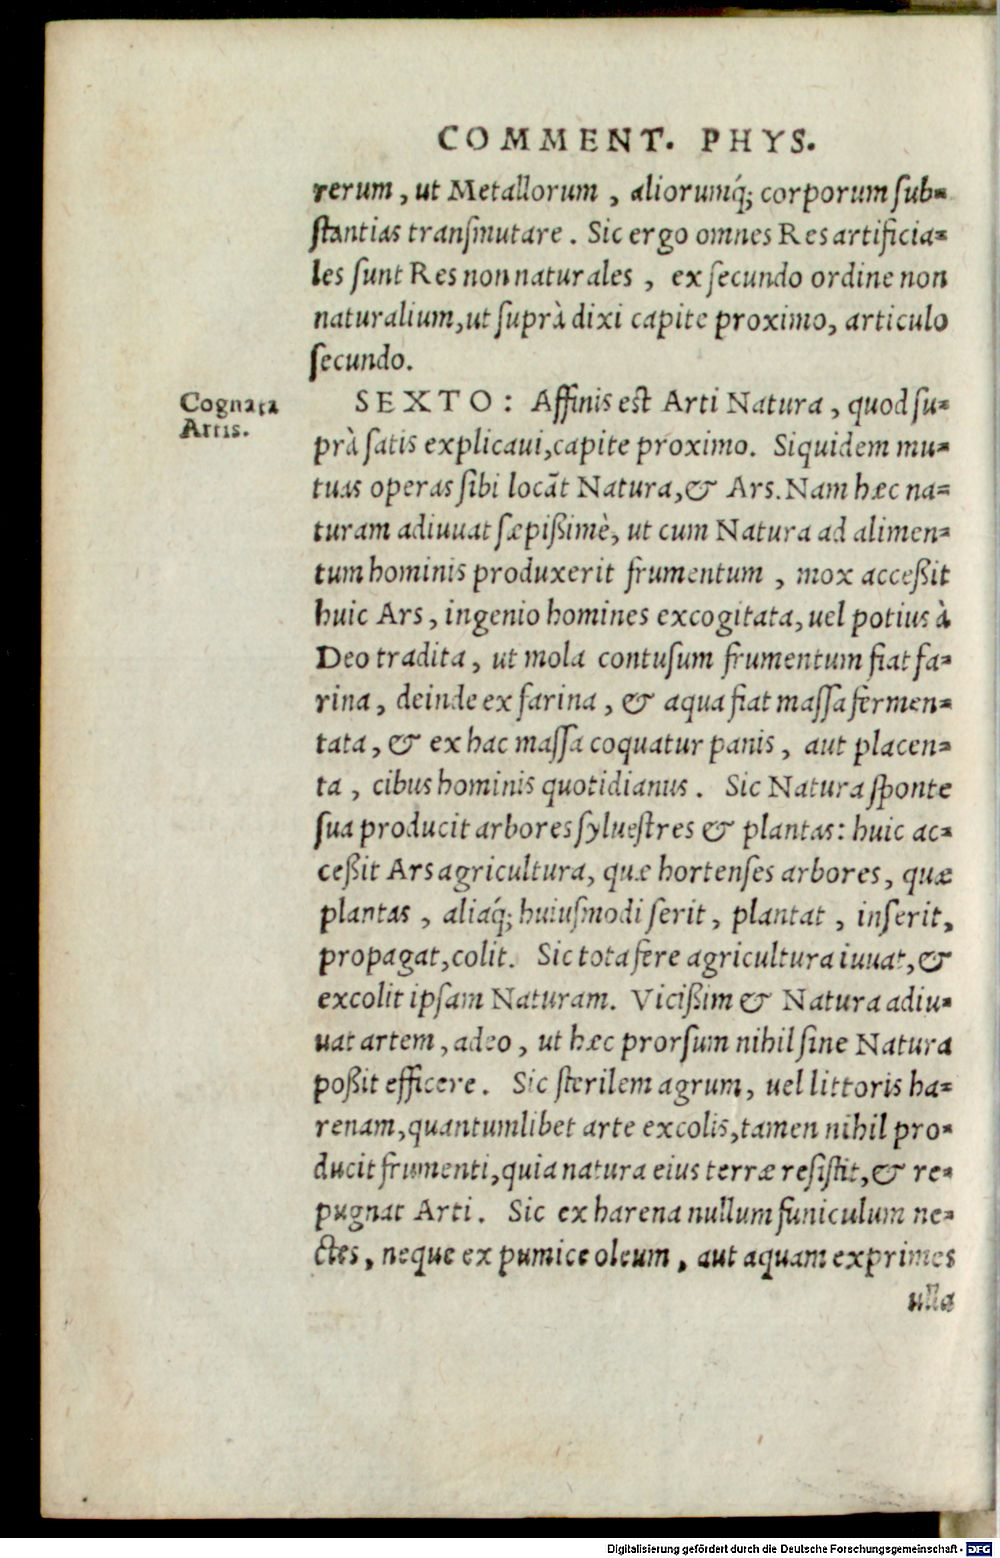 COMMENT. PHYS.
rerum, ut Metallorum, aliorumq́; corporum sub-
stantias transmutare. Sic ergo omnes Res artificia-
les sunt Res non naturales, ex secundo ordine non
naturalium, ut suprà dixi capite proximo, articulo
secundo.
Cognata
Artis.
SEXTO: Affinis est Arti Natura, quod su-
prà satis explicaui, capite proximo. Siquidem mu-
tuas operas sibi locāt Natura, & Ars. Nam hæc na-
turam adiuuat sæpißimè, ut cum Natura ad alimen-
tum hominis produxerit frumentum, mox acceßit
huic Ars, ingenio homines excogitata, uel potius à
Deo tradita, ut mola contusum frumentum fiat fa-
rina, deinde ex farina, & aqua fiat massa fermen-
tata, & ex hac massa coquatur panis, aut placen-
ta, cibus hominis quotidianus. Sic Natura sponte
sua producit arbores syluestres & plantas: huic ac-
ceßit Ars agricultura, quæ hortenses arbores, quæ
plantas, aliaq́; huiusmodi serit, plantat, inserit,
propagat, colit. Sic tota fere agricultura iuuat, &
excolit ipsam Naturam. Vicißim & Natura adiu-
uat artem, adeo, ut hæc prorsum nihil sine Natura
poßit efficere. Sic sterilem agrum, uel littoris ha-
renam, quantumlibet arte excolis, tamen nihil pro-
ducit frumenti, quia natura eius terræ resistit, & re-
pugnat Arti. Sic ex harena nullum funiculum ne-
ctes, neque ex pumice oleum, aut aquam exprimes
ulla
Digitalisierung gefördert durch die Deutsche Forschungsgemeinschaft - DFG